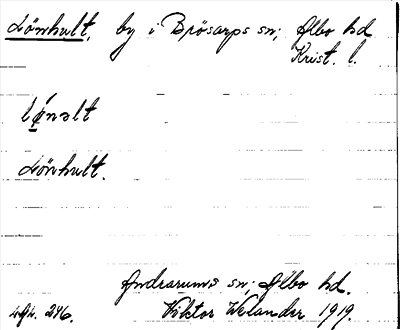 Lönhult, by i Brösarps sn; Albo hd
Krist. l.
Lönhult.
Andrarums sn; Albo hd.
Viktor Welander 1919.